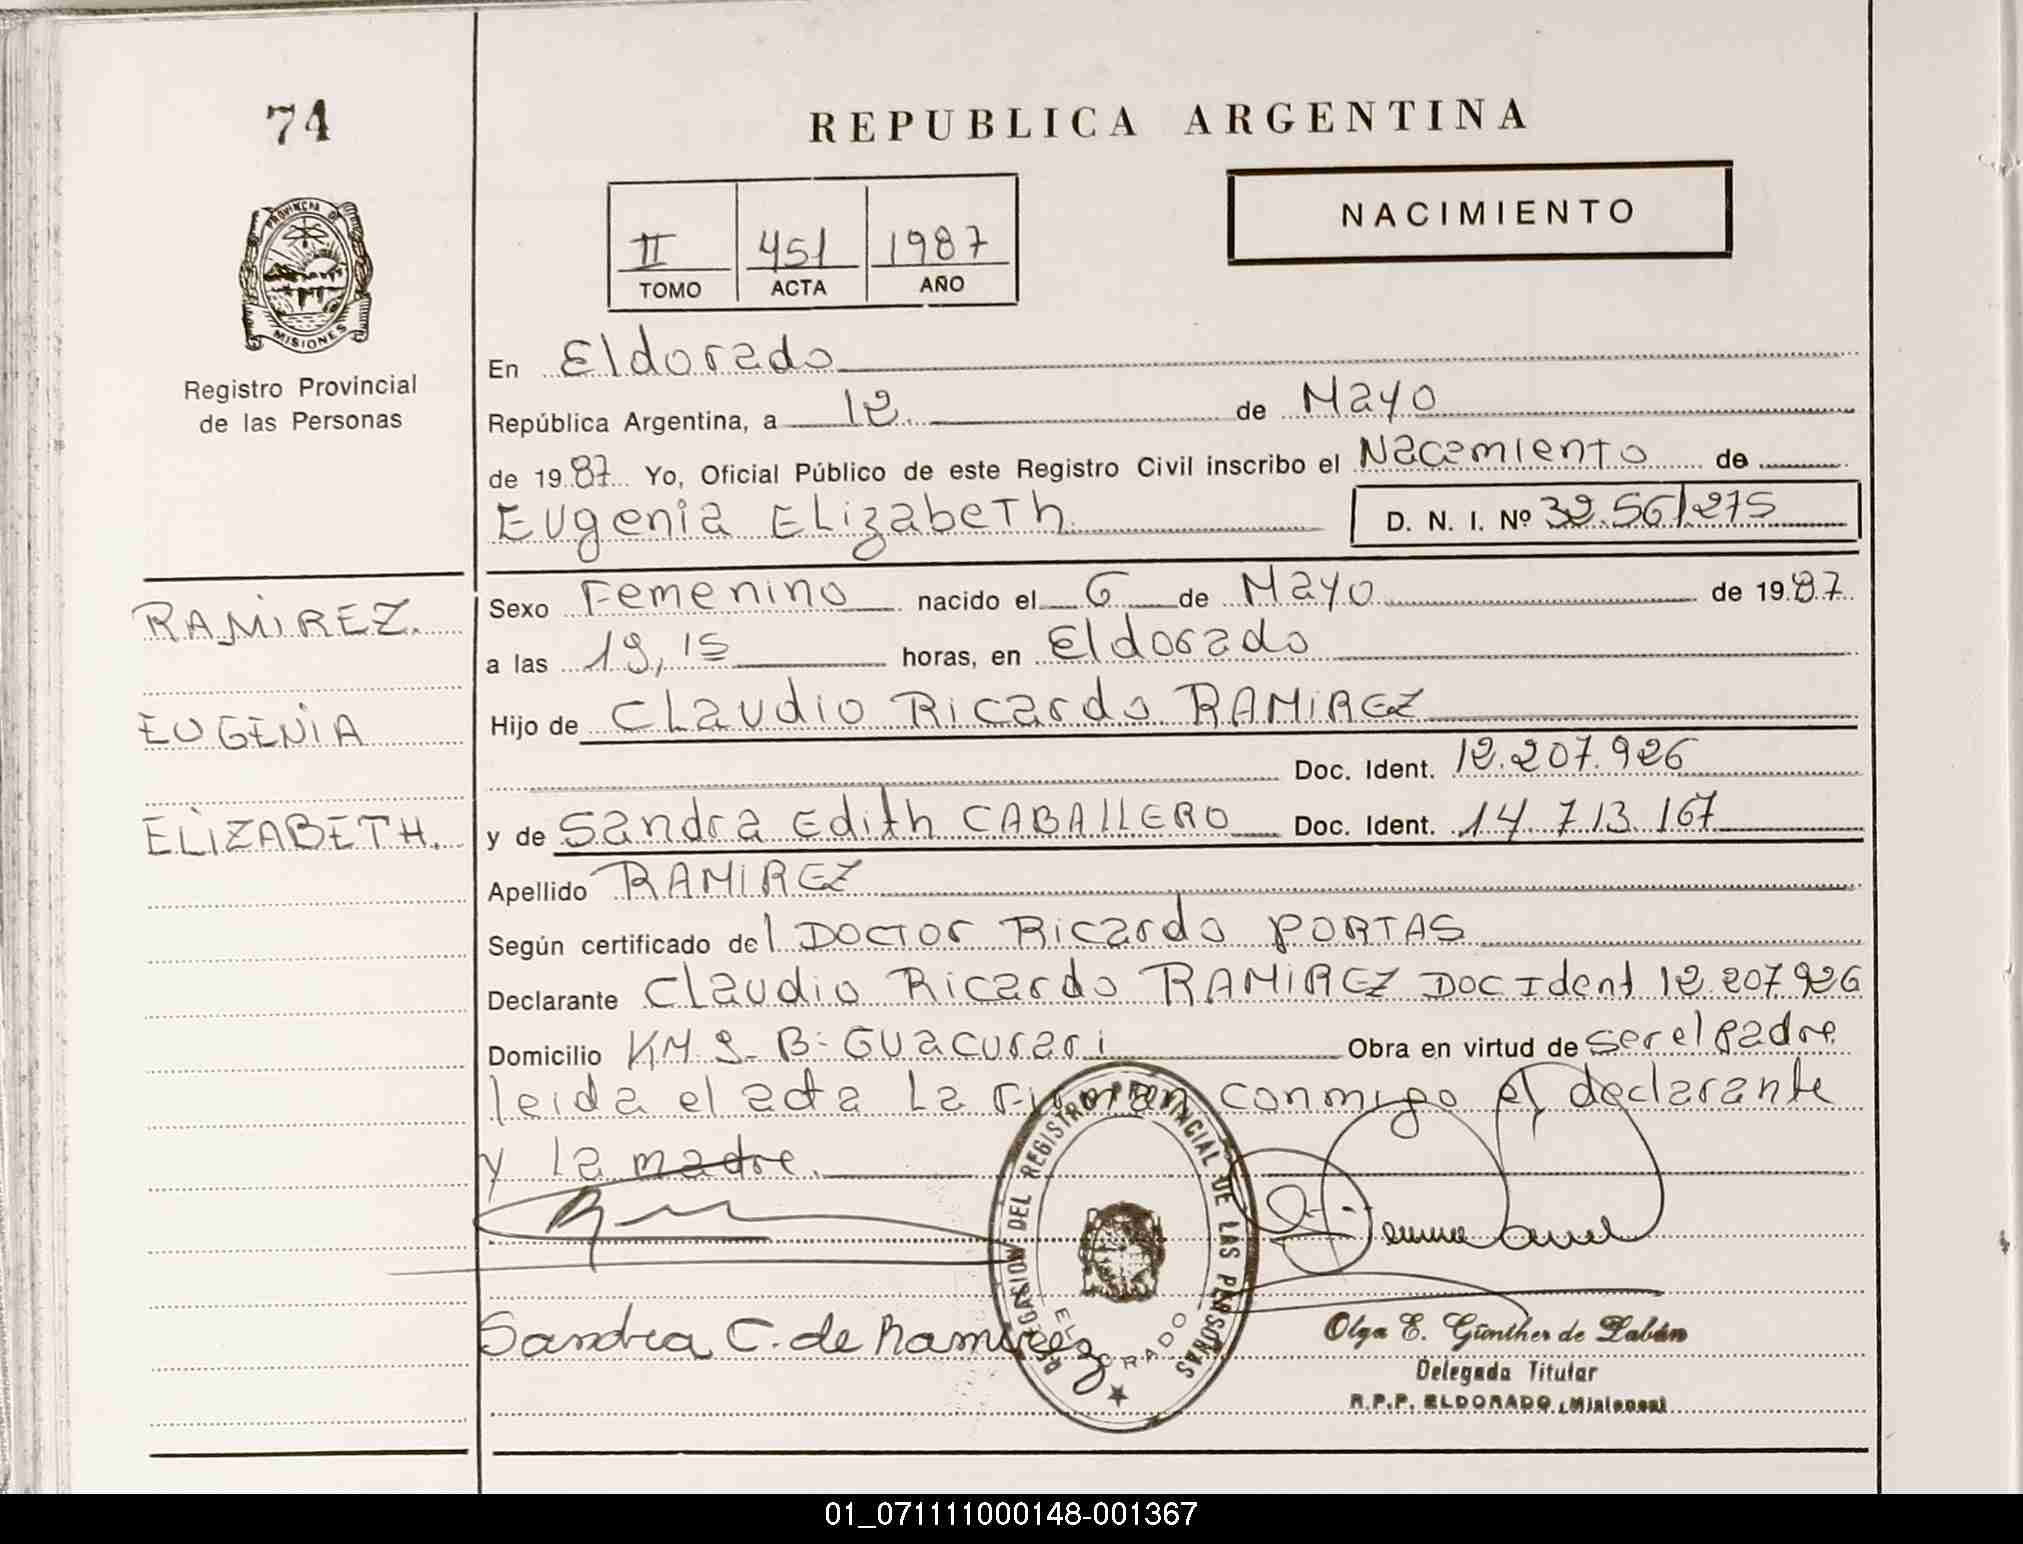 74
REPUBLICA ARGENTINA
NACIMIENTO
II 451 1987
TOMO ACTA AÑO
PROVINCIA DE MISIONES
Registro Provincial
de las Personas
En Eldorado
República Argentina, a 12 de Mayo
de 1987 Yo, Oficial Público de este Registro Civil inscribo el Nacemiento de
Eugenia Elizabeth D. N. I. Nº 32.561275
RAMIREZ
EUGENIA
ELIZABETH.
Sexo Femenino nacido el 6 de Mayo de 1987
a las 19,15 horas, en Eldorado
Hijo de Claudio Ricardo RAMIREZ
Doc. Ident. 12.207.926
y de Sandra Edith CABALLERO Doc. Ident. 14.713.167
Apellido RAMIREZ
Según certificado del Doctor Ricardo PORTAS
Declarante Claudio Ricardo RAMIREZ Doc Ident 12.207.926
Domicilio KM 9- B: Guacurari Obra en virtud de ser el padre
leida el acta la firman conmigo el declarante
y la madre.
Sandra C. de Ramirez
DELEGASION DEL REGISTRO PROVINCIAL DE LAS PERSONAS
ELDORADO
Olga E. Günther de Labán
Delegada Titular
R.P.P. ELDORADO (Misiones)
01_071111000148-001367